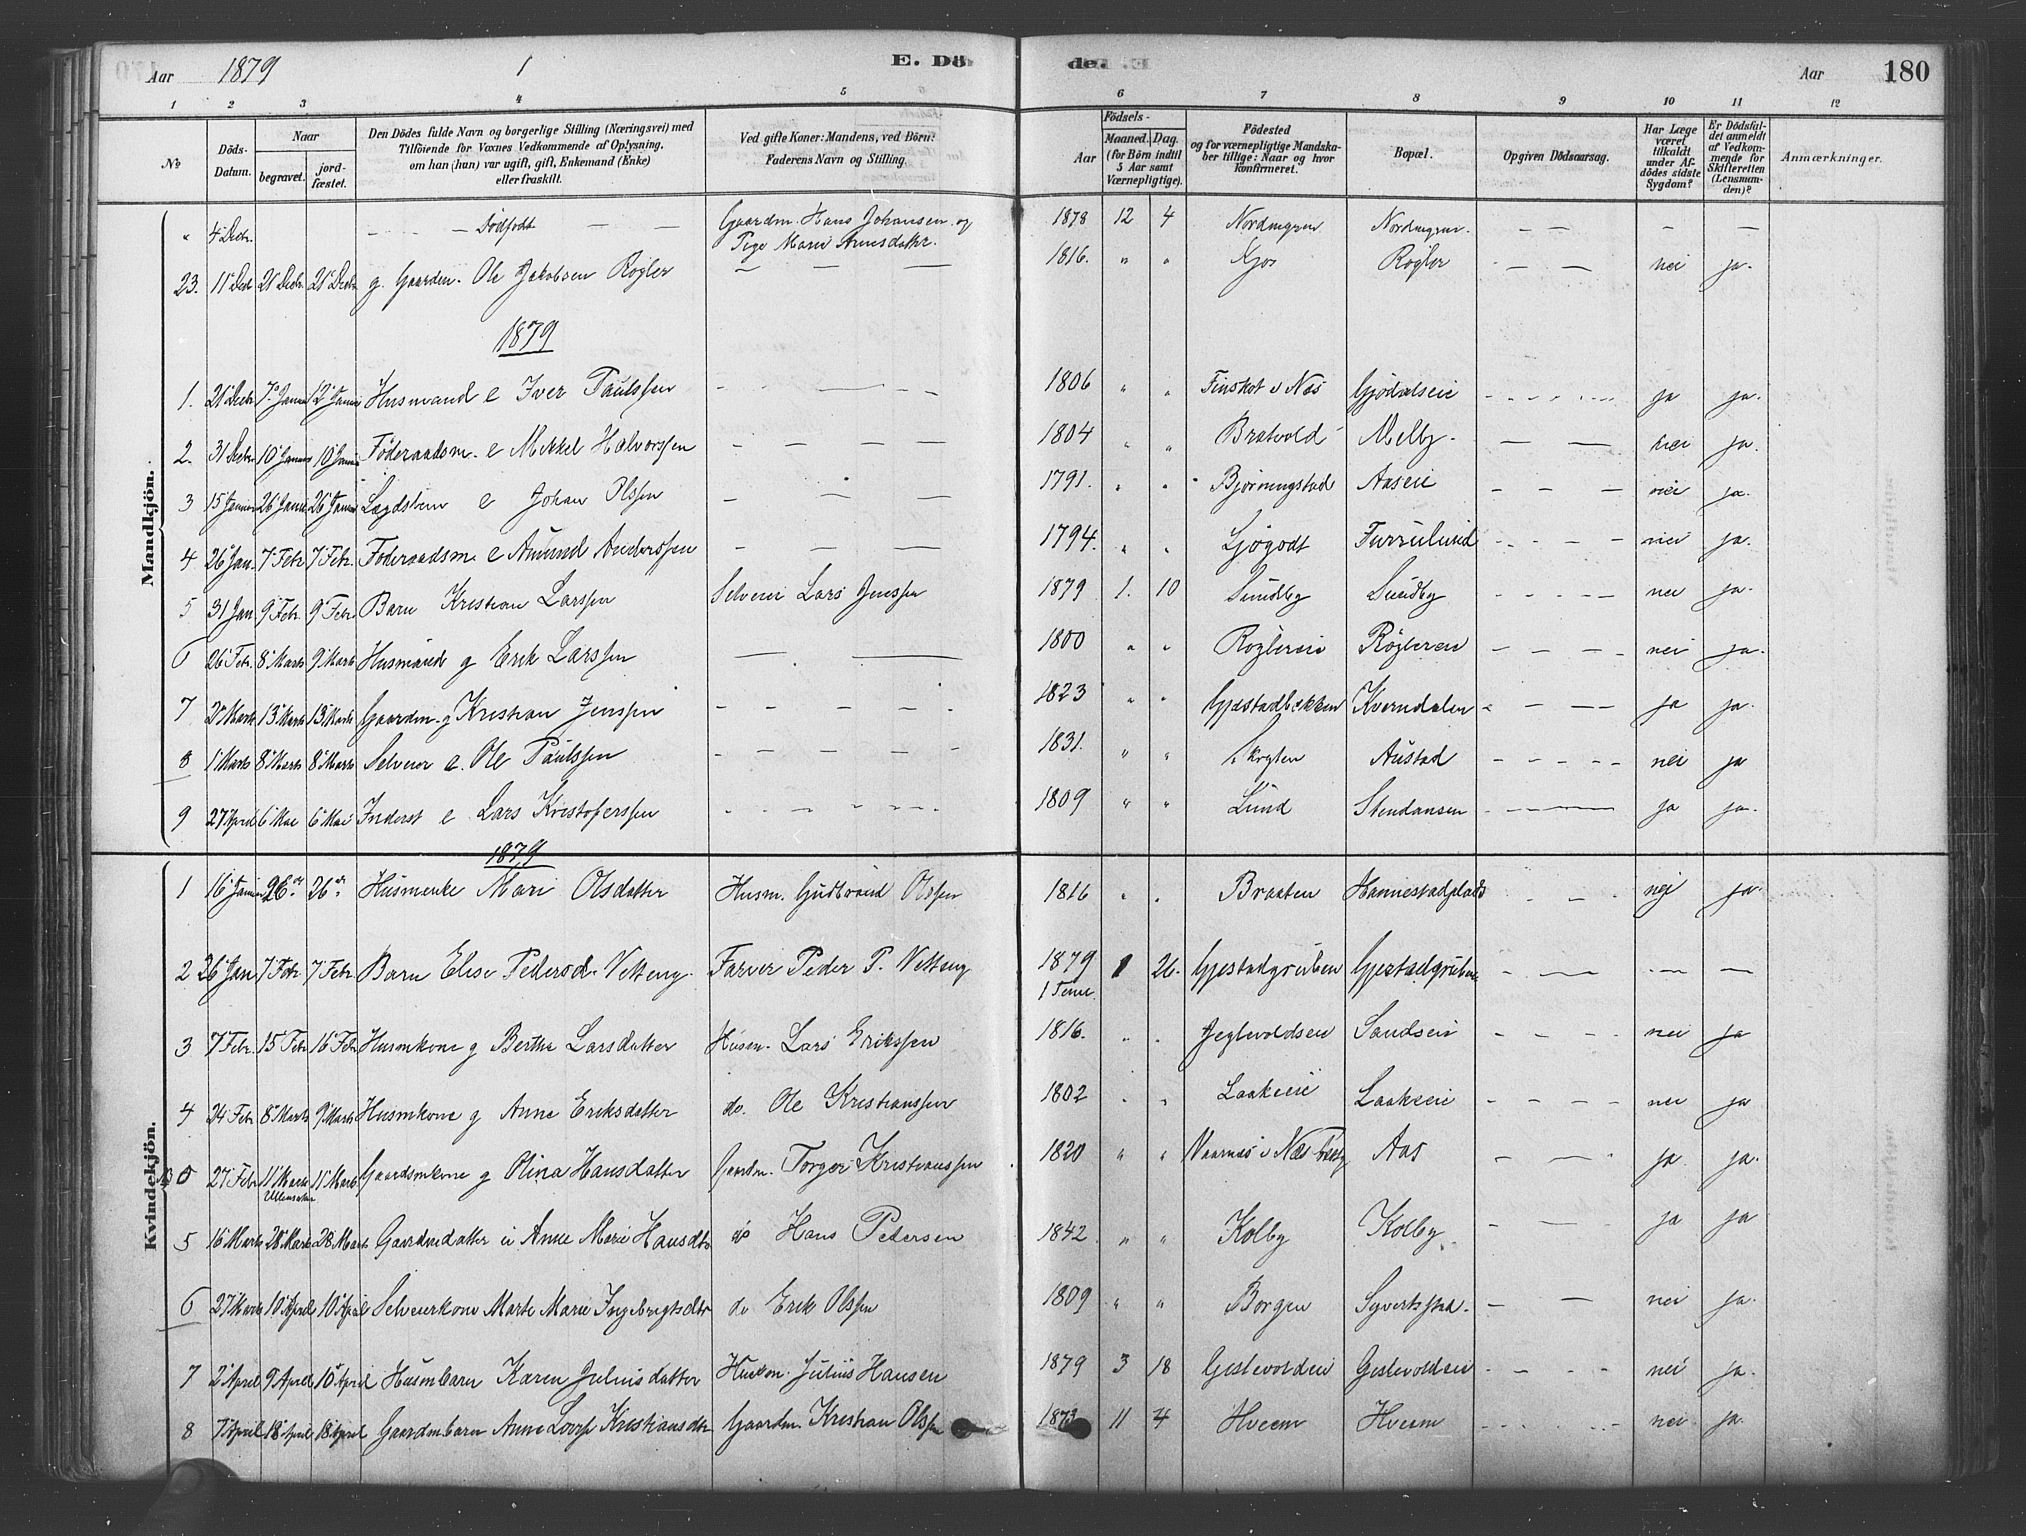 Aar 1879 1 E. Dö
de. Aar 180
1 2 3 4 5 6 7 8 9 10 11 12
No Döds-Datum. Naar begravet. jordfæstet. Den Dödes fulde Navn og borgerlige Stilling (Næringsvei) med Tilföiende for Voxnes Vedkommende af Oplysning, om han (hun) var ugift, gift, Enkemand (Enke) eller fraskilt. Ved gifte Koner: Mandens, ved Börn: Faderens Navn og Stilling. Aar Födsels- Maaned. Dag. (for Börn indtil 5 Aar samt Værnepligtige). Födested og for værnepligtige Mandskaber tillige: Naar og hvor konfirmeret. Bopæl. Opgiven Dödsaarsag. Har Læge været tilkaldt under Afdödes sidste Sygdom? Er Dödsfaldet anmeldt af Vedkommende for Skifteretten (Lensmanden)? Anmærkninger.
Mandkjön.
" 4 Decbr. — Dödfödt — — Gaardm. Hans Johansen og Pige Marie Arnesdatter. 1878 12 4 Nordengen Nordengen. — — — —
23. 11 Dec 21 Decbr. 21 Decbr g. Gaardm. Ole Jakobsen Rögler — — — 1816. " " Kjos Rögler — — nei ja.
1879
1. 21 Decbr 7 Januar 12 Januar Husmand e Iver Paulssen — — — 1806 " " Finskot i Næs Gjödalseie — — ja ja.
2. 31 Decbr 10 Januar 10 Januar Föderaadsm. e Mikkel Halvorssen — — — — 1804 " " Bratvold Melby. — — nei ja.
3 15 Januar 26 Januar 26 Januar Lægdslem e Johan Olssen — — — 1791. " " Bjørningstad Aaseie — — — nei ja.
4 26 Jan. 7 Febr 7 Febr. Föderaadsm e Amund Anderssen — — — 1794. " " Ljøgodt Furrulund — — — nei ja.
5 31 Jan 9 Febr. 9 Febr. Barn Kristian Larssen Selveier Lars Jenssen 1879 1. 10 Sundby Sundby — — — nei ja.
6 26 Febr. 8 Marts 9 Marts Husmand g Erik Larssen — — 1800 " " Röglereie Röglereie — — — nei ja.
7 2 Marts 13 Marts 13 Marts Gaardm. g Kristian Jenssen — — — — 1823 " " Gjestadbekken Kverndalen — — — ja ja.
8 1 Marts 8 Marts 8 Marts Selveier e. Ole Paulssen — — — — 1831. " " Skogten Austad — — — nei ja
9 27 April 6 Mai 6 Mai Inderst e Lars Kristoferssen — — — 1809 " " Lund Stendansen — — ja ja.
Kvindekjön.
1879
1 16 Januar 26 de. 26 de. Husmenke Mari Olsdatter Husm. Gudbrand Olssen 1816 " " Braaten Hannestadplads — — nei ja.
2 26 Jan 7 Febr. 7 Febr. Barn Elise Pedersd. Vetteng. Farver Peder P. Vetteng 1879 1 26. Gjestadgruben Gjestadgruben — — — —
1 Time.
3 7 Febr. 15 Febr 16 Febr Husmkone g Berthe Larsdatter Husm. Lars Erikssen 1816. " " Jeglevoldseie Sandseie — — — nei ja
4 24 Febr 8 Marts 9 Marts Husmkone g Anne Eriksdatter do. Ole Kristianssen 1802 " " Laakeeie Laakeeie — — — nei ja
5 27 Febr 11 Marts 11 Marts Gaardmkone g Olina Hansdatter Gaardm. Torger Kristianssen 1820 " " Vaarnæs i Næs Aas — — ja ja.
Ullensaker
5 16 Marts 28 Marts 28 Marts Gaardmdatter u Anne Marie Hansdtr do Hans Pedersen 1842. " " Kolby Kolby. — — ja ja
6 27 Marts 10 April 10 April Selveierkone Marte Marie Ingebrigtsdtr do Erik Olssen 1809 " " Borgen Syvertsstad. — — nei ja.
7 2 April 9 April 10 April Husmbarn Karen Juliusdatter Husm. Julius Hansen 1879 3 18 Gislevoldeie Gislevoldeie — — — nei ja.
8 7 April 18 April 18 April Gaardmbarn Anne Lovise Kristiansdtr Gaardm. Kristian Olssen 187 11 4 Hveem Hveem — — nei ja.